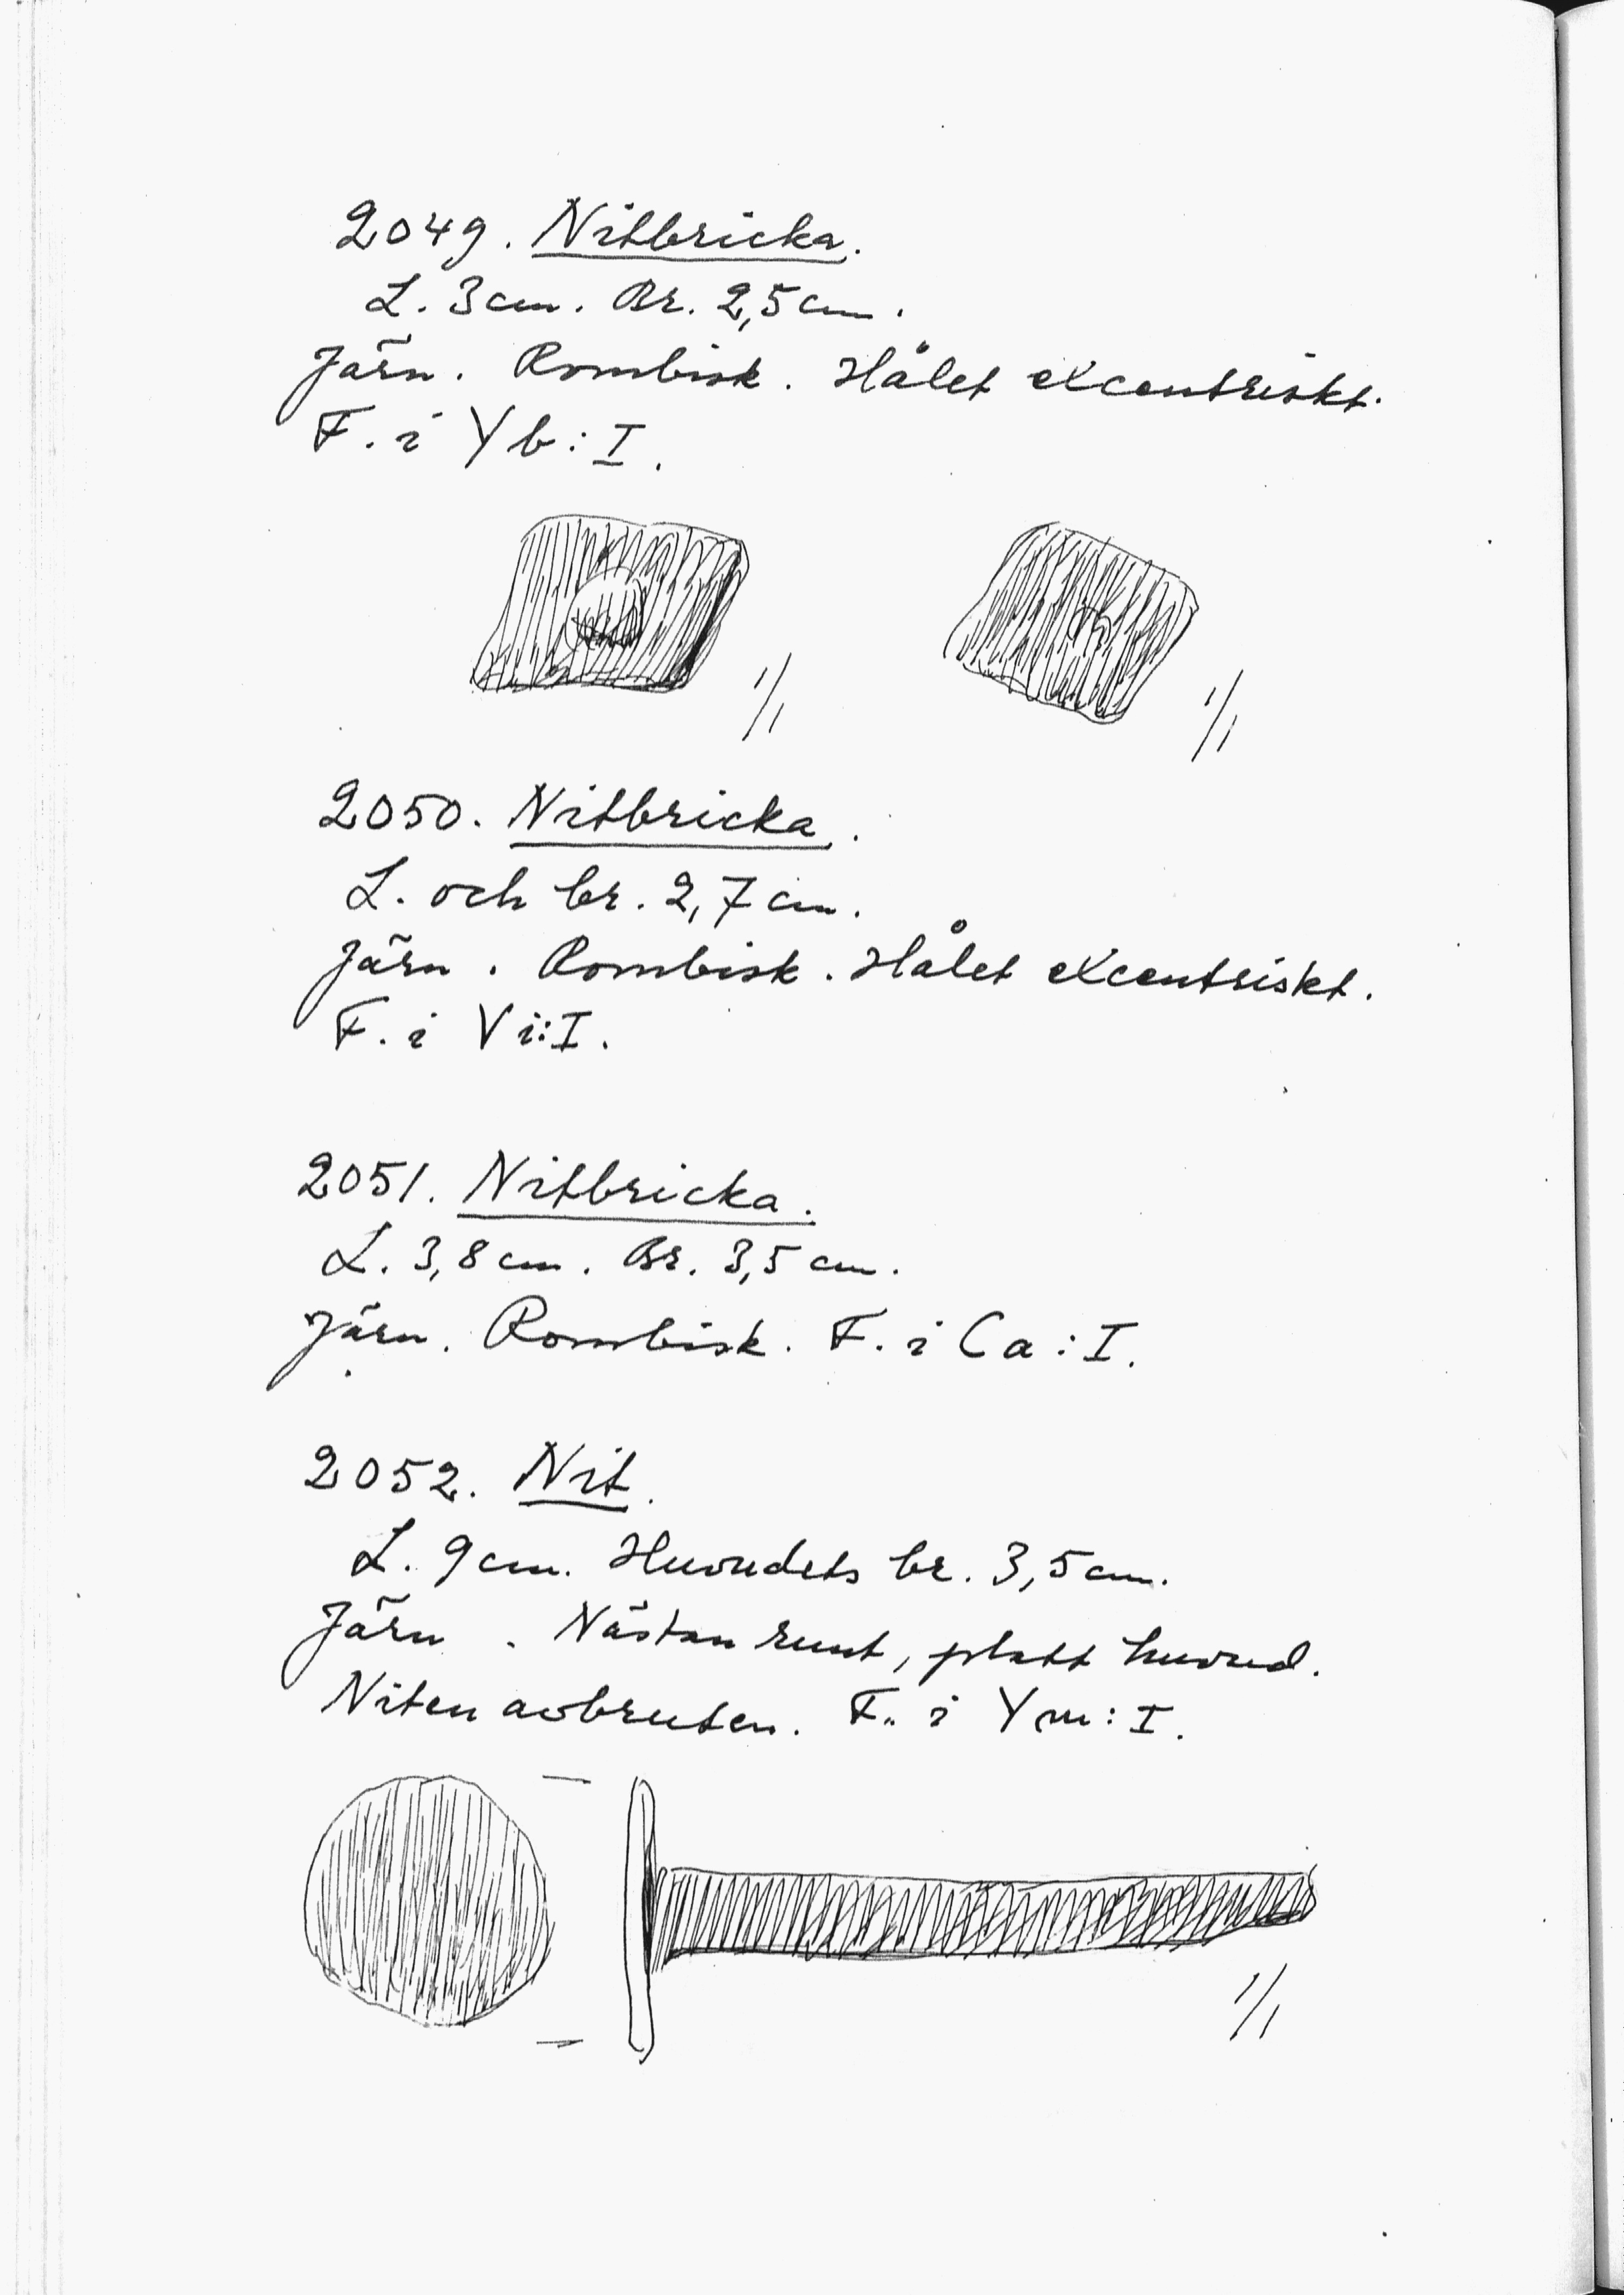 2049. Nitbricka.
L. 3 cm. Br. 2,5 cm.
Järn. Rombisk. Hålet excentriskt.
F. i Yb: I.
1/1
1/1
2050. Nitbricka.
L. och br. 2,7 cm.
Järn. Rombisk. Hålet excentriskt.
F. i Vi: I.
2051. Nitbricka.
L. 3,8 cm. Br. 3,5 cm.
Järn. Rombisk. F. i Ca: I.
2052. Nit.
L. 9 cm. Huvudets br. 3,5 cm.
Järn. Nästan runt, platt huvud.
Niten avbruten. F. i Ym: I.
1/1